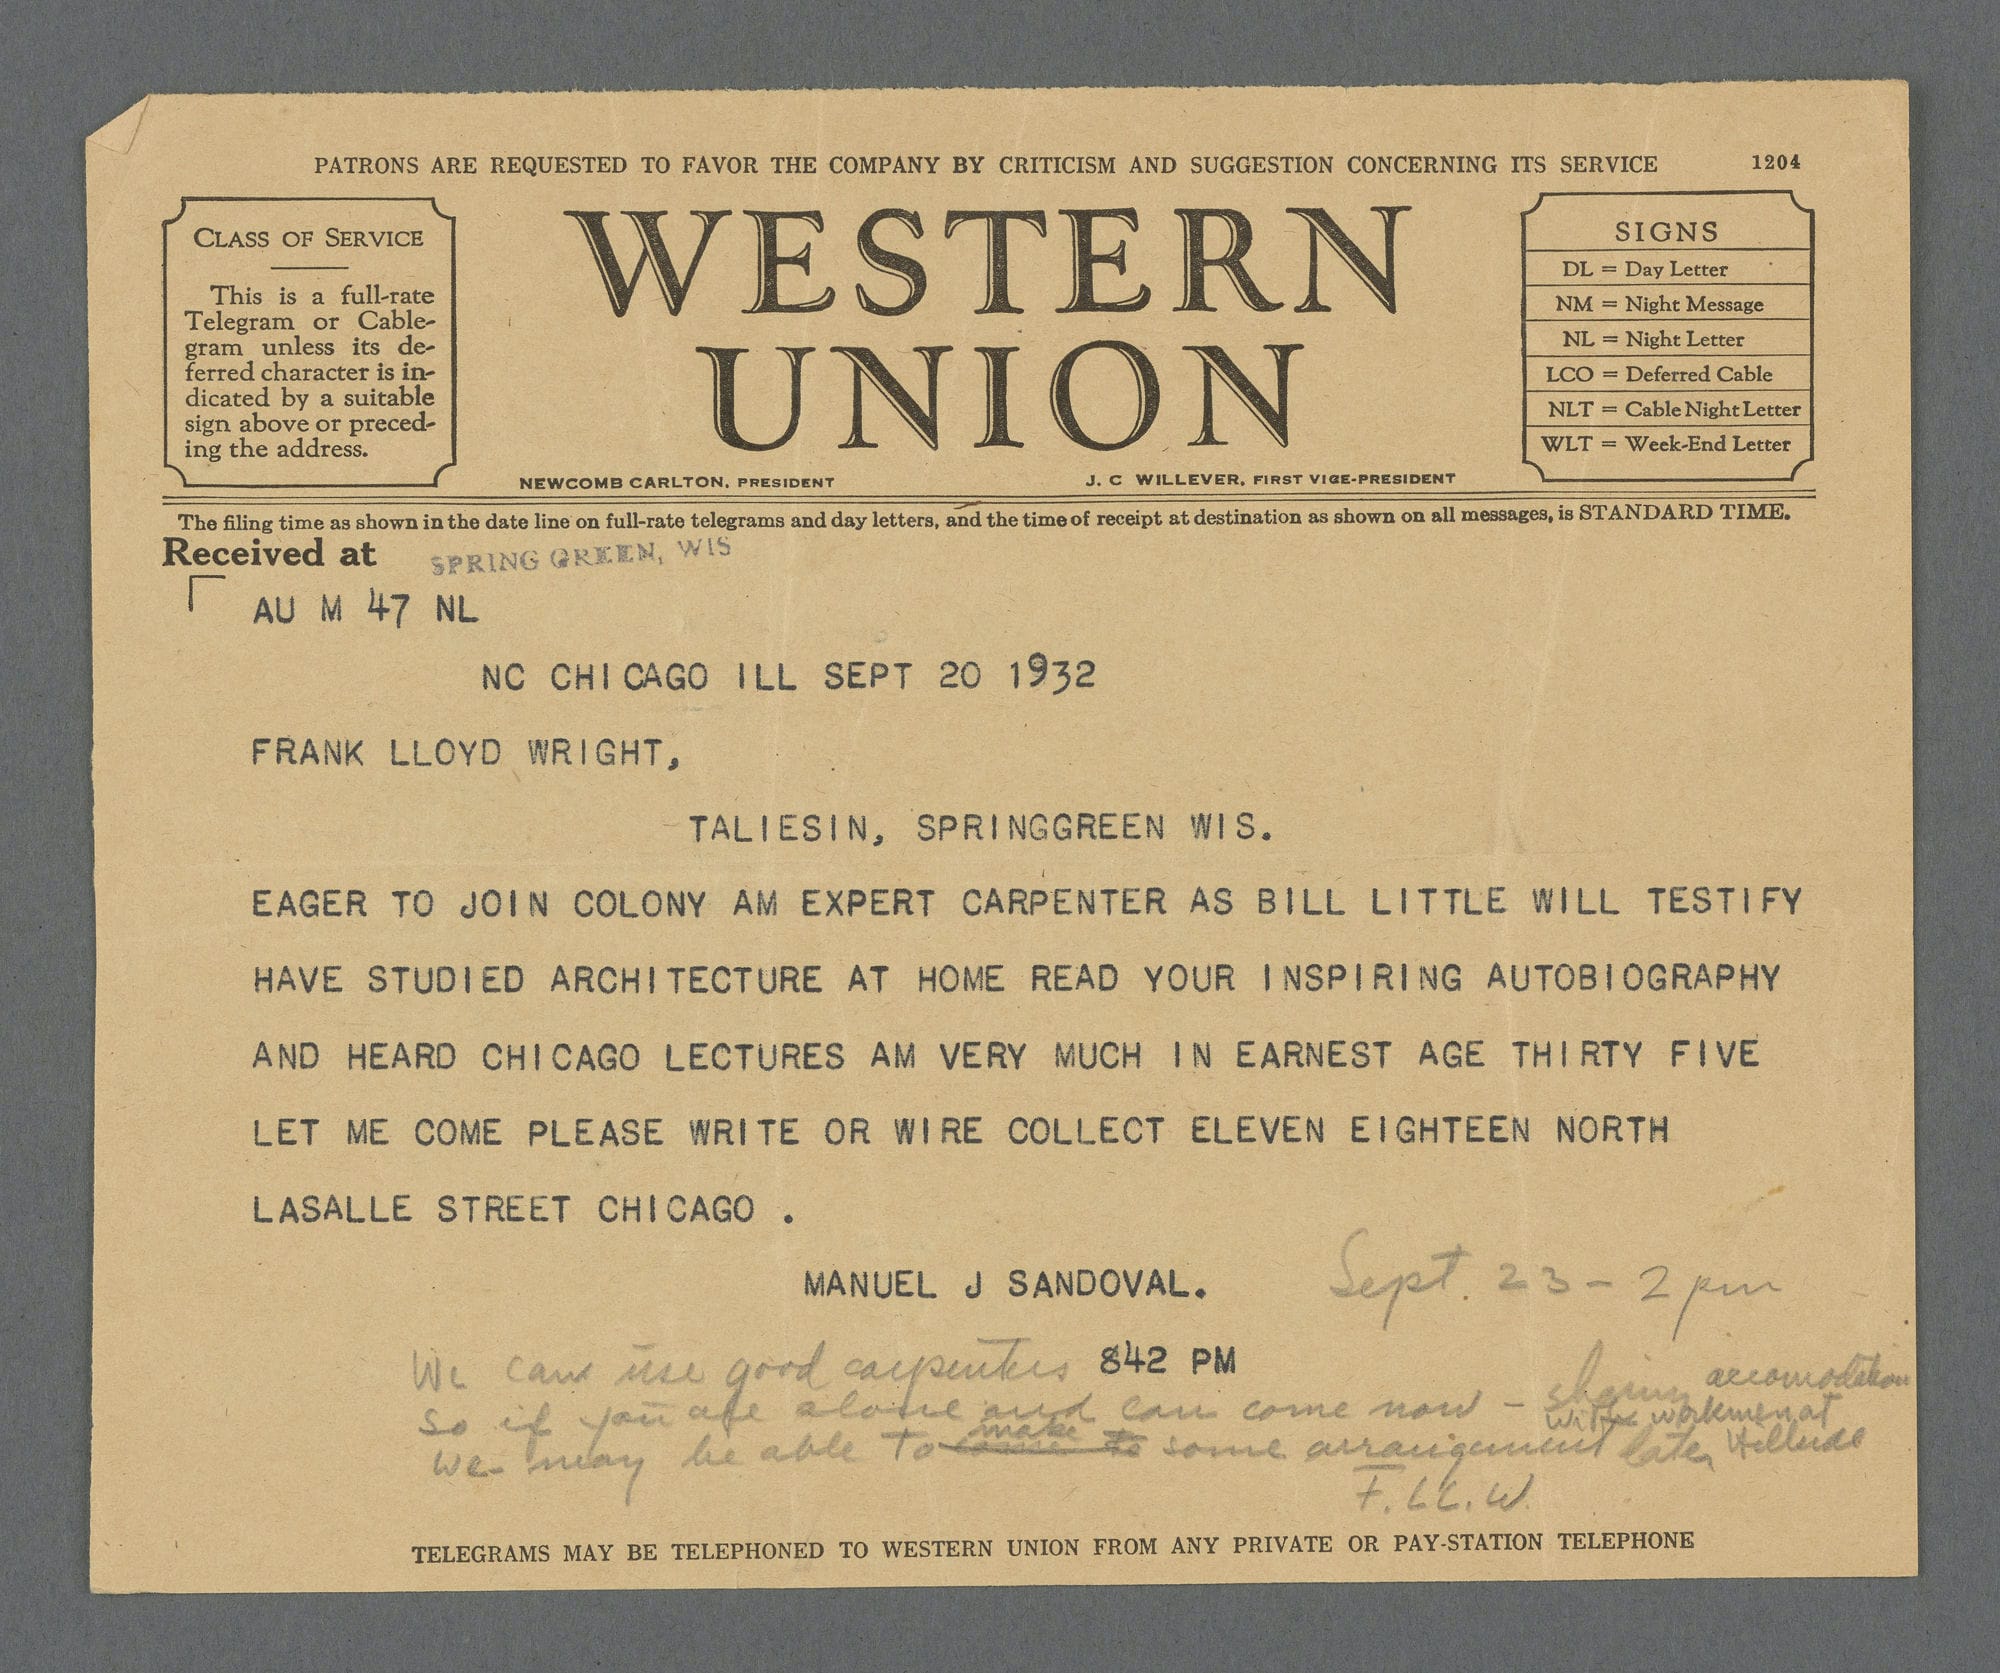 PATRONS ARE REQUESTED TO FAVOR THE COMPANY BY CRITICISM AND SUGGESTION CONCERNING ITS SERVICE 1204
CLASS OF SERVICE
This is a full-rate
Telegram or Cable-
gram unless its de-
ferred character is in-
dicated by a suitable
sign above or preced-
ing the address.
WESTERN
UNION
NEWCOMB CARLTON, PRESIDENT J. C WILLEVER, FIRST VICE-PRESIDENT
SIGNS
DL = Day Letter
NM = Night Message
NL = Night Letter
LCO = Deferred Cable
NLT = Cable Night Letter
WLT = Week-End Letter
The filing time as shown in the date line on full-rate telegrams and day letters, and the time of receipt at destination as shown on all messages, is STANDARD TIME.
Received at SPRING GREEN, WIS
AU M 47 NL
NC CHICAGO ILL SEPT 20 1932
FRANK LLOYD WRIGHT,
TALIESIN, SPRINGGREEN WIS.
EAGER TO JOIN COLONY AM EXPERT CARPENTER AS BILL LITTLE WILL TESTIFY
HAVE STUDIED ARCHITECTURE AT HOME READ YOUR INSPIRING AUTOBIOGRAPHY
AND HEARD CHICAGO LECTURES AM VERY MUCH IN EARNEST AGE THIRTY FIVE
LET ME COME PLEASE WRITE OR WIRE COLLECT ELEVEN EIGHTEEN NORTH
LASALLE STREET CHICAGO .
MANUEL J SANDOVAL. Sept. 23 - 2 pm
We can use good carpenters 842 PM
so if you are alone and can come now - sharing accomodation
with workmen at
Hillside
we may be able to make some arrangement later
F. LL. W.
TELEGRAMS MAY BE TELEPHONED TO WESTERN UNION FROM ANY PRIVATE OR PAY-STATION TELEPHONE